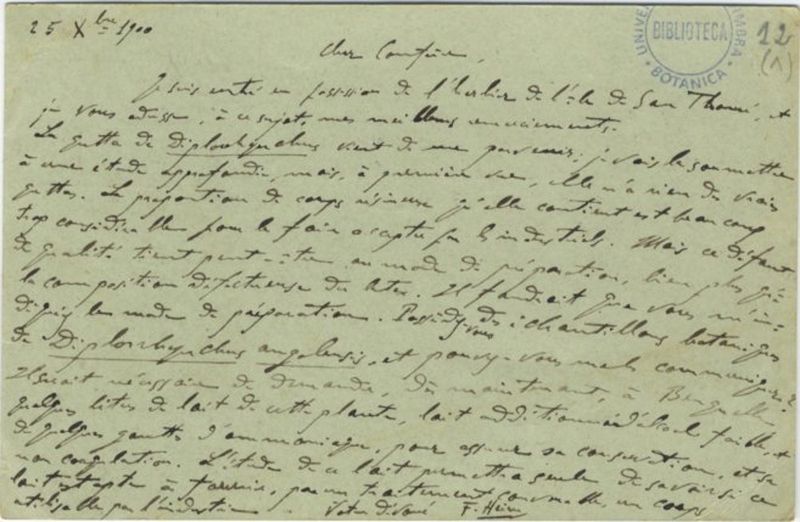 25 Xbre 1900
UNIVE IMBRA
BIBLIOTECA
BOTANICA
12
(1)
Cher Confrère,
Je suis entré en possession de l'herbier de l'île de San Thomé, et
je vous adresse, à ce sujet, mes meilleurs remerciements.
La gutta de Diplorhynchus vient de me parvenir; je vais la soumettre
à une étude approfondie, mais, à première vue, elle n'a rien des vraies
guttas. La proportion de corps résineux qu'elle contient est beaucoup
trop considérable pour la faire accepter par les industriels. Mais ce défaut
de qualité tient peut-être au mode de préparation, bien plus qu'à
la composition défectueuse du latex. Il faudrait que vous m'in-
diquiez les modes de préparation. Possédez-vous des échantillons botaniques
de Diplorhynchus angolensis, et pouvez-vous me les communiquer?
Il serait nécessaire de demander, dès maintenant, à Benguella
quelques litres de lait de cette plante, lait additionné d'alcool faible, et
de quelques gouttes d'ammoniaque, pour assurer sa conservation, et sa
non coagulation. L'étude de ce lait permettra seule de savoir si ce
lait est apte à fournir, par un traitement convenable, un corps
utilisable par l'industrie. Votre dévoué F. Heim